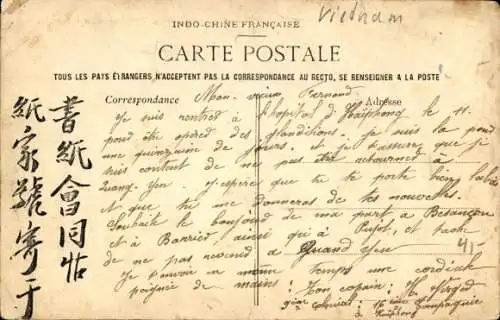 Vietnam
INDO-CHINE FRANÇAISE
CARTE POSTALE
TOUS LES PAYS ÉTRANGERS N'ACCEPTENT PAS LA CORRESPONDANCE AU RECTO, SE RENSEIGNER A LA POSTE
Correspondance
Adresse
Mon vieux Fernand
Je suis rentré à l'hôpital d'Haïphong le 11
pour être opéré des glanditions. Je suis là pour
une quinzaine de jours. et je t'assure que je
suis content de ne pas être retourné à
Quang-Yen. J'espère que tu te porte bien là bas
et que tu me donneras de tes nouvelles.
Souhaite le bonjour de ma part à Besançon
et à Barrier ainsi qu'à Pujol, et tâche
de ne pas revenir à Quang Yen
Je t'envoie en même temps une cordiale
poignée de mains: Ton copain: H.
9ième Colonial: 16ième Compagnie
Haïphong
41-
書紙會同帖
紙家號寄于